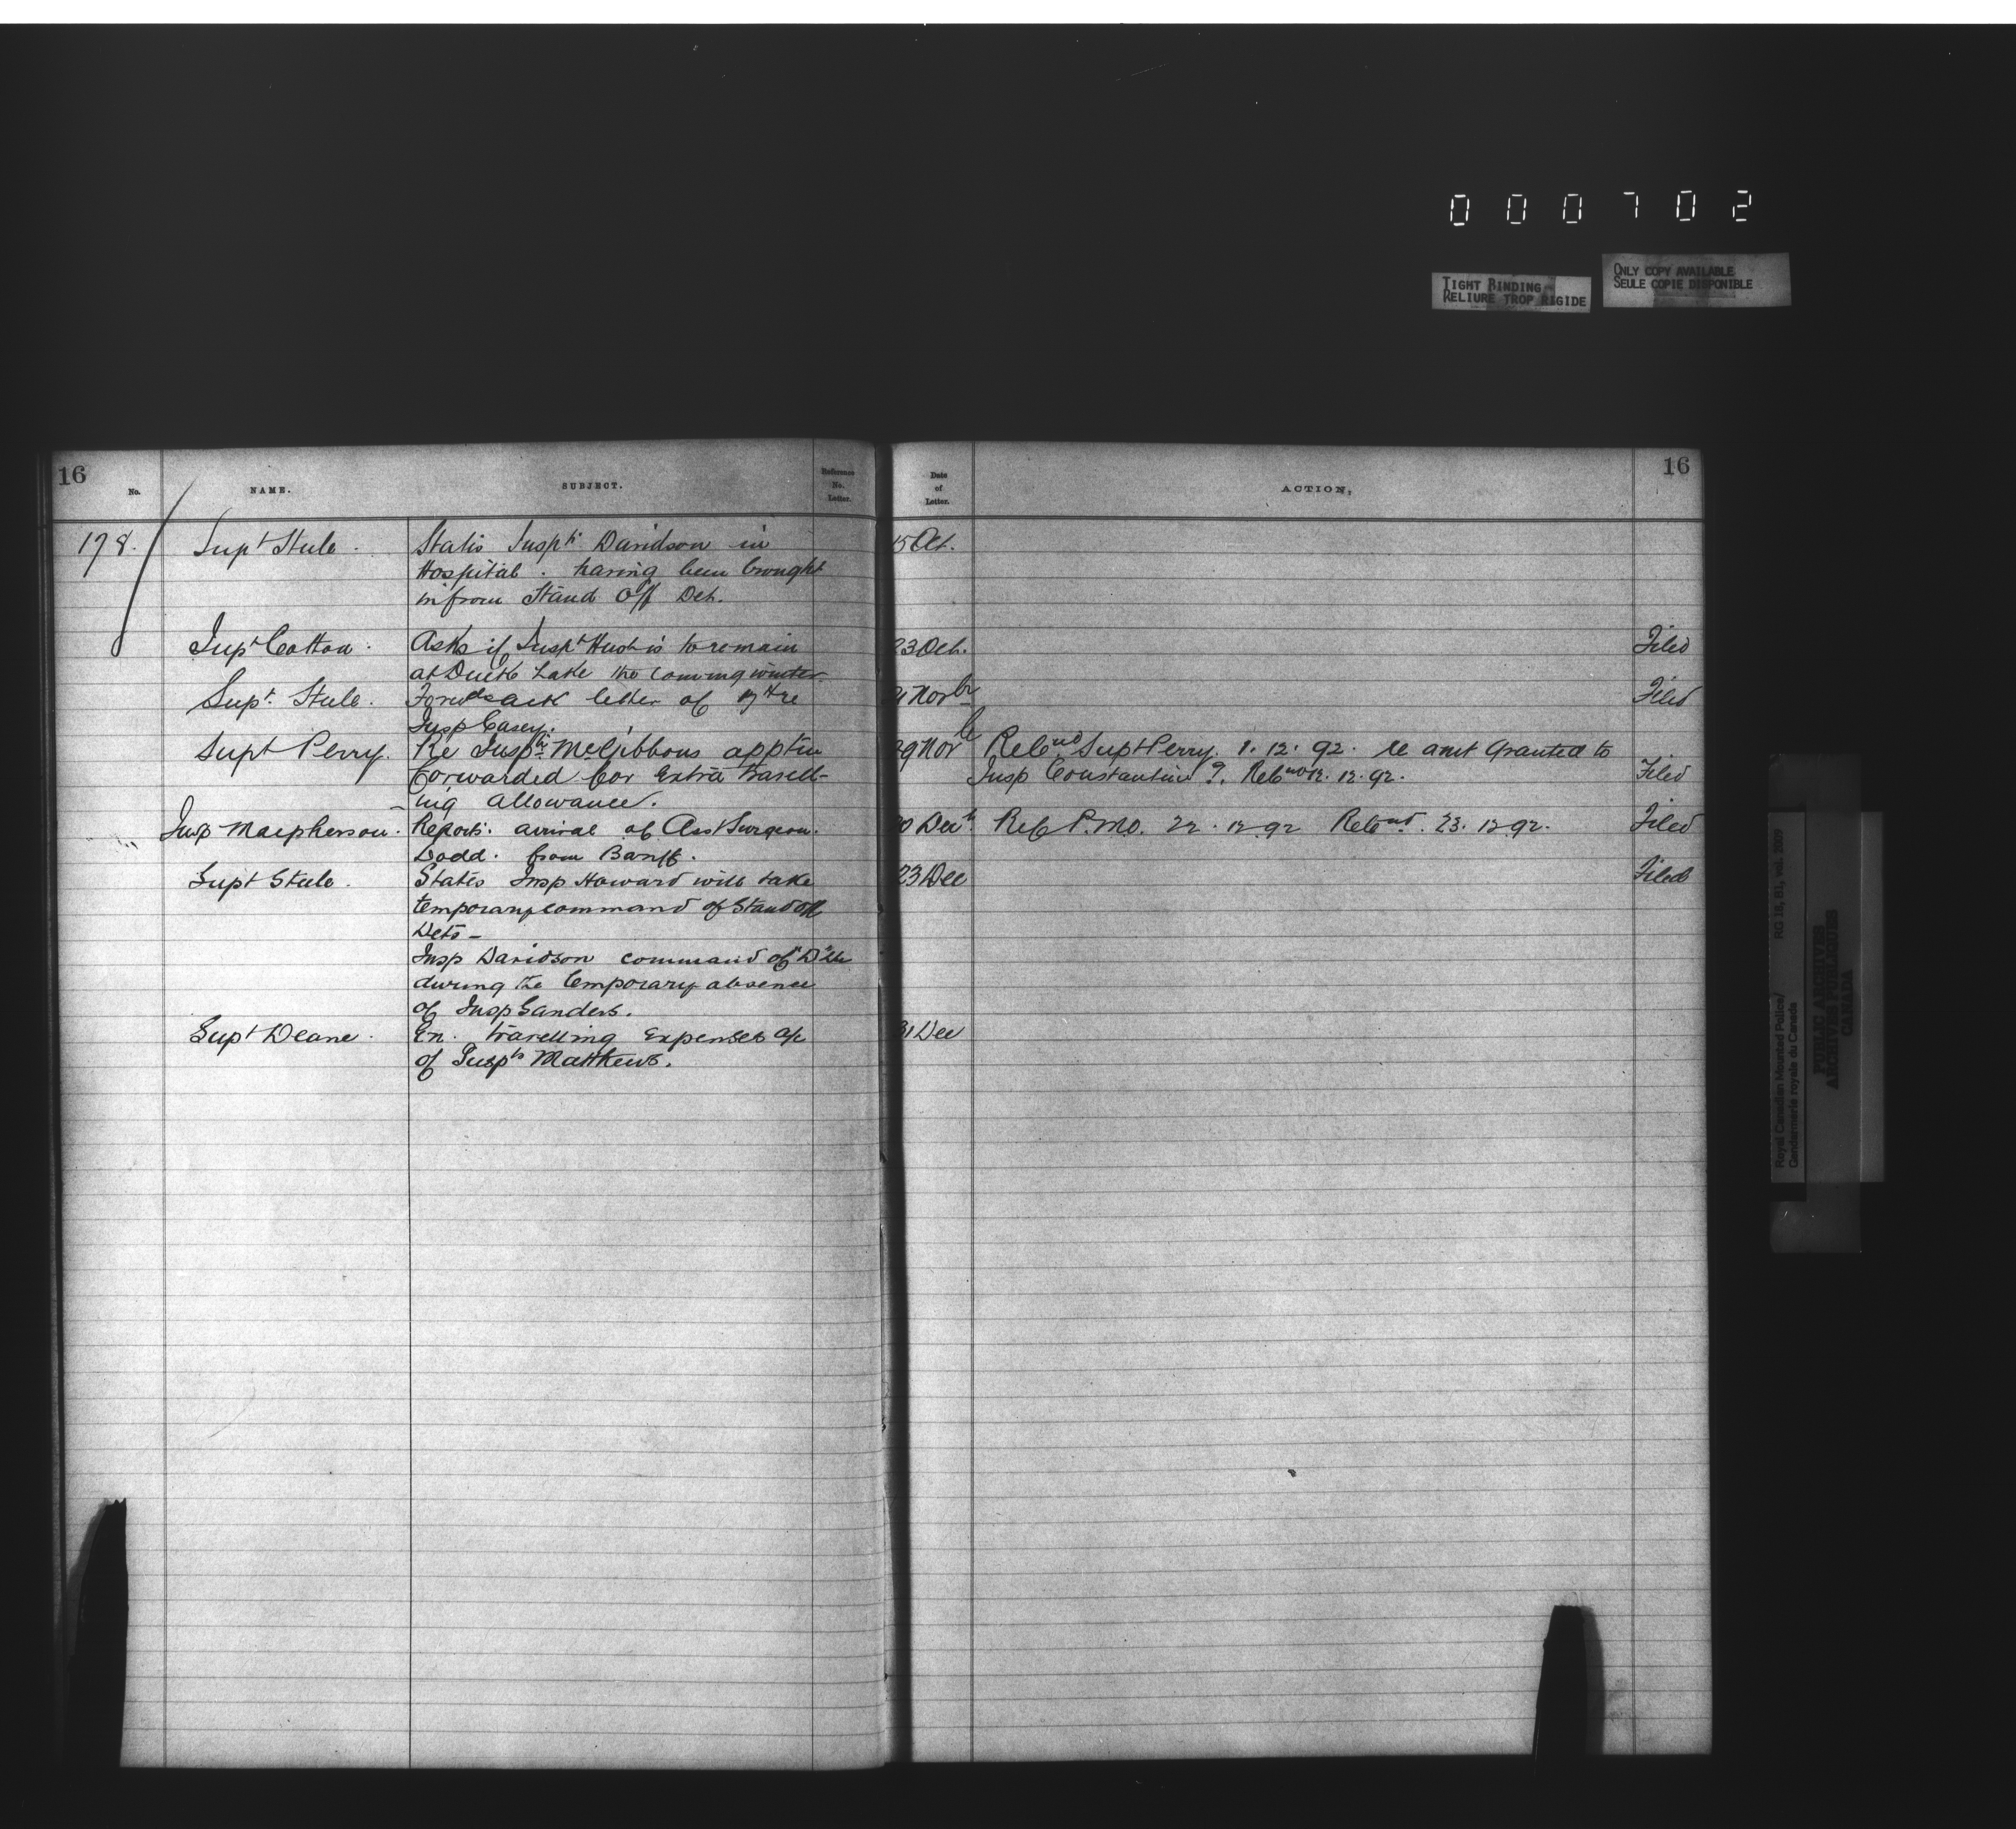 0 0 0 7 0 2
TIGHT BINDING
RELIURE TROP RIGIDE
ONLY COPY AVAILABLE
SEULE COPIE DISPONIBLE
16
No.
NAME.
SUBJECT.
Reference
No.
Letter.
Date
of
Letter.
ACTION,
16
178. Supt Steele. States Inspr Davidson in 15 Oct.
Hospital. having been brought
in from Stand Off Det.
Supt Cotton. Asks if Inspr Huot is to remain 23 Oct. Filed
at Duck Lake the coming winter.
Supt. Steele. Forwds ack letter of re Novbr Filed
Insp Casey.
Supt Perry. Re Inspr McGibbons apptn 29 Novbr Retnd Supt Perry. 1. 12. 92. re amt Granted to
forwarded for Extra travell- Insp Constantine ?. Retnd 12. 12. 92. Filed
ing allowance.
Insp Macpherson. Reports. arrival of Asst Surgeon. 20 Decr Ref P.M.O. 22. 12 92 Retnd. 23. 12 92. Filed
Dodd. from Banff.
Supt Steele. States Insp Howard will take 23 Dec Filed
temporary command of Stand off
Dets -
Insp Davidson command of "D"
during the temporary absence
of Insp Sanders.
Supt Deane. En. travelling Expenses a/c 31 Dec
of Inspr Matthews.
Royal Canadian Mounted Police/
Gendarmerie royale du Canada
RG 18, B1, vol. 2309
PUBLIC ARCHIVES
ARCHIVES PUBLIQUES
CANADA